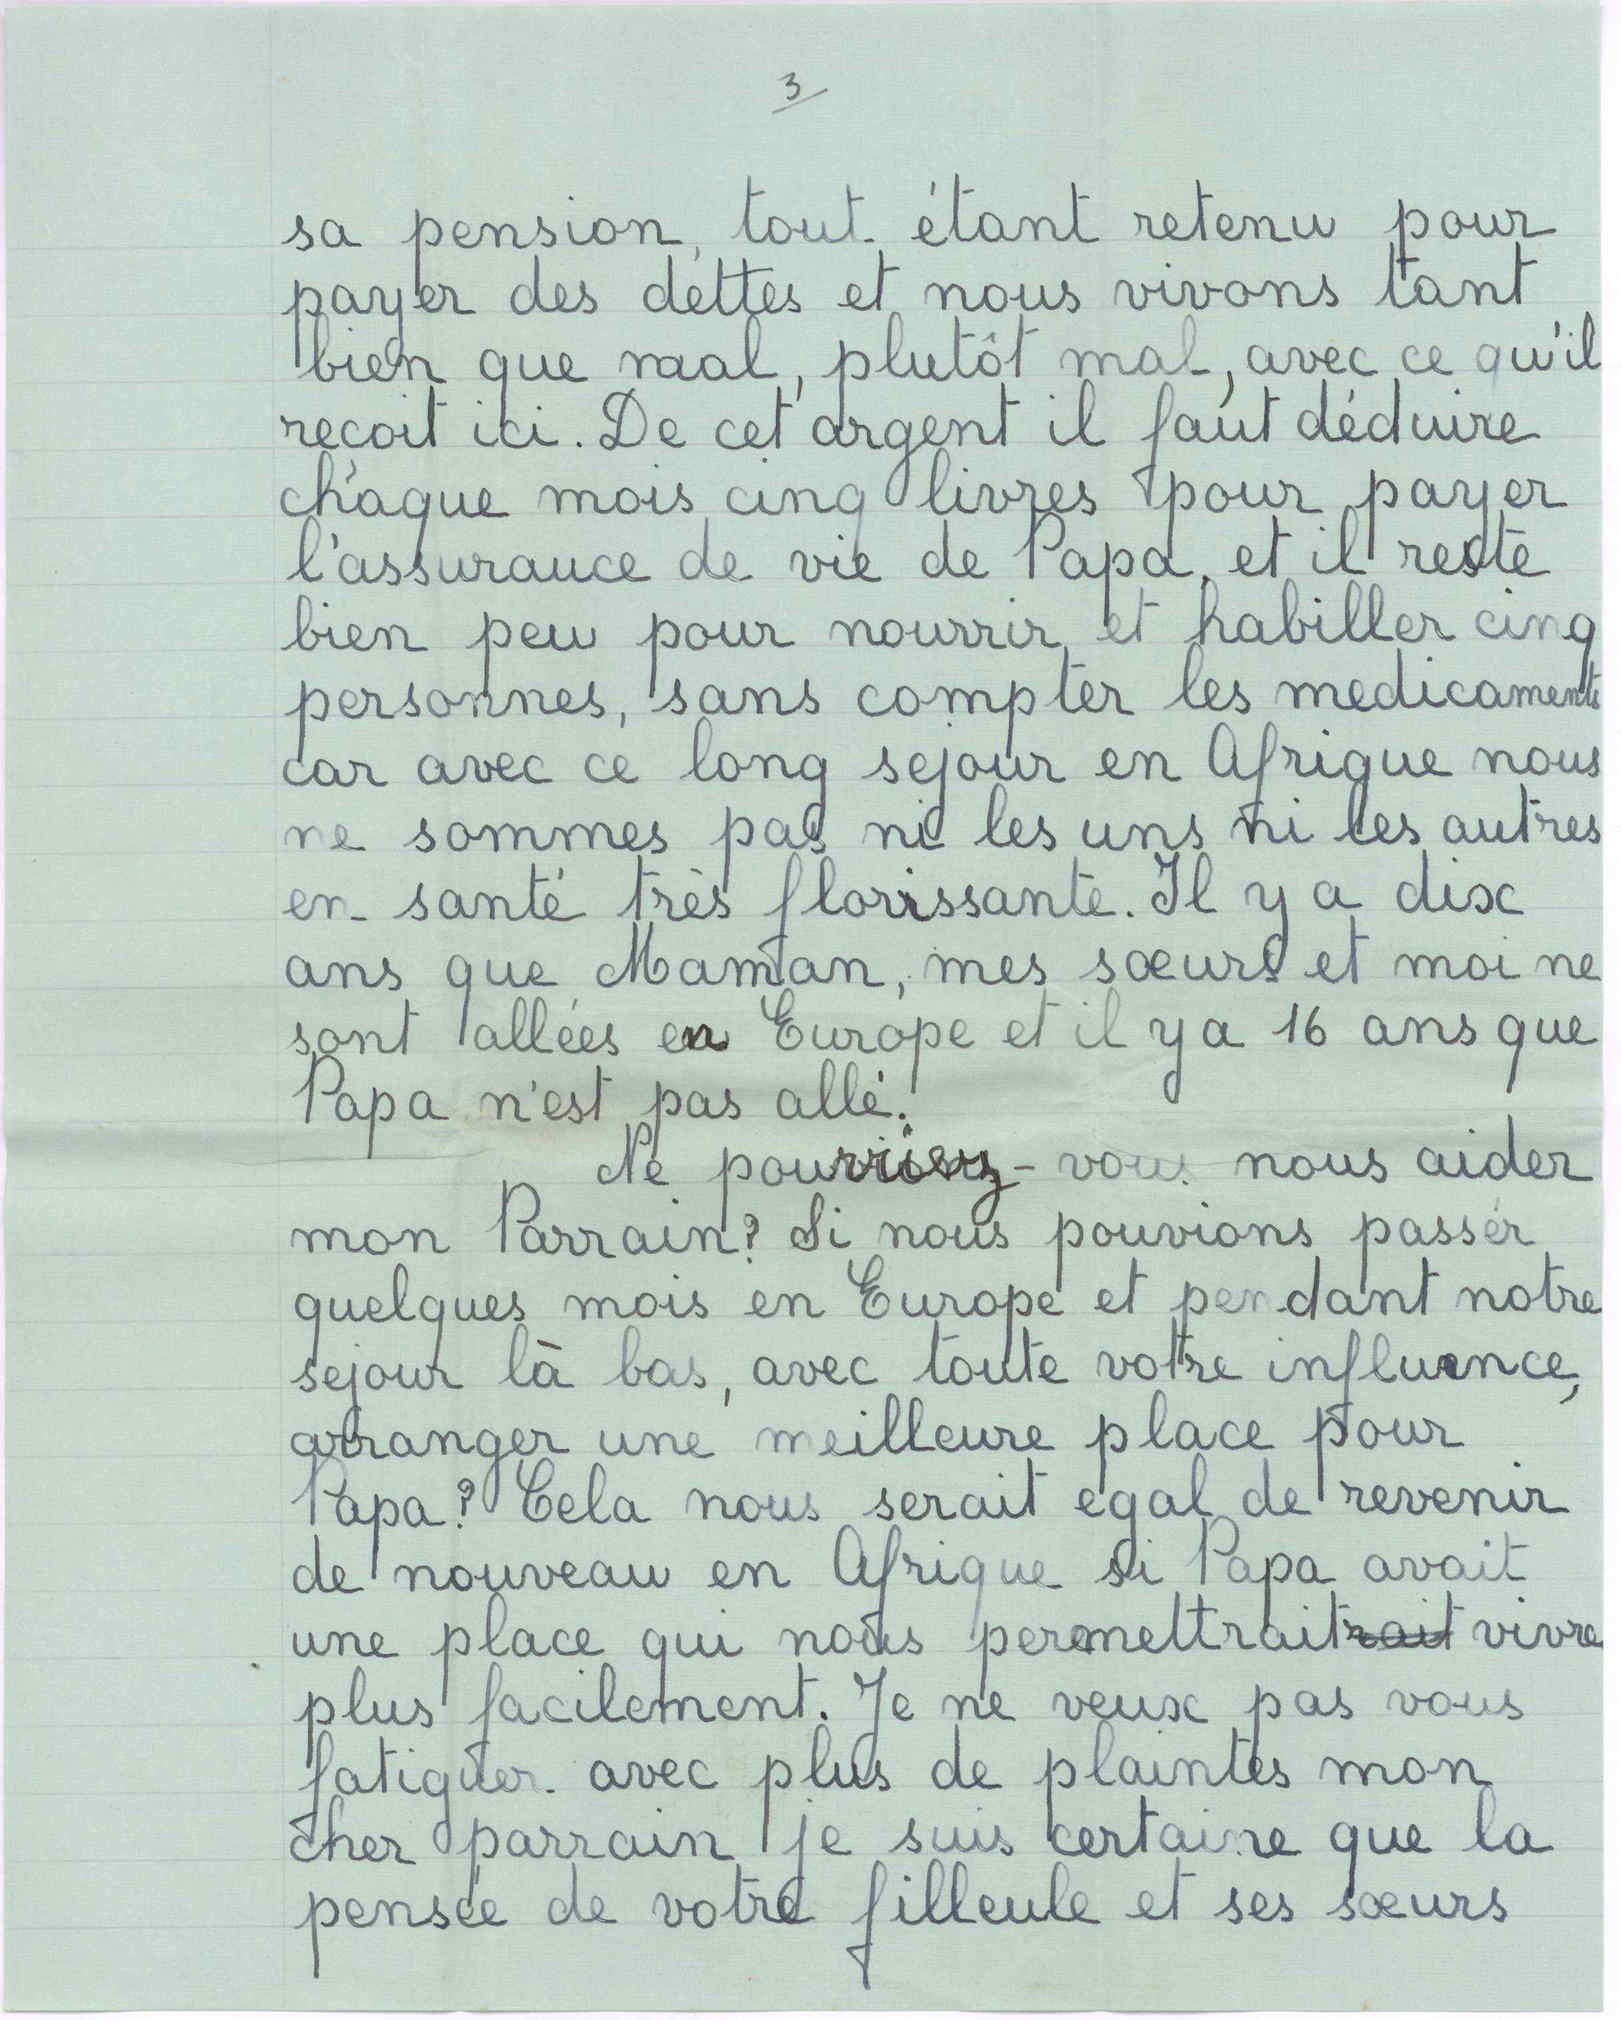 3
sa pension, tout étant retenu pour
payer des dettes et nous vivons tant
bien que mal, plutôt mal, avec ce qu'il
reçoit ici. De cet argent il faut déduire
chaque mois cinq livres pour payer
l'assurance de vie de Papa, et il reste
bien peu pour nourrir et habiller cinq
personnes, sans compter les medicaments
car avec ce long sejour en Afrique nous
ne sommes pas ni les uns ni les autres
en santé très florissante. Il y a dix
ans que Maman, mes sœurs et moi ne
sont allées en Europe et il y a 16 ans que
Papa n'est pas allé.
Ne pourriez-vous nous aider
mon Parrain? Si nous pouvions passer
quelques mois en Europe et pendant notre
sejour là bas, avec toute votre influence,
arranger une meilleure place pour
Papa? Cela nous serait egal de revenir
de nouveau en Afrique si Papa avait
une place qui nous permettraitrait vivre
plus facilement. Je ne veux pas vous
fatiguer avec plus de plaintes mon
cher parrain je suis certaine que la
pensée de votre filleule et ses sœurs